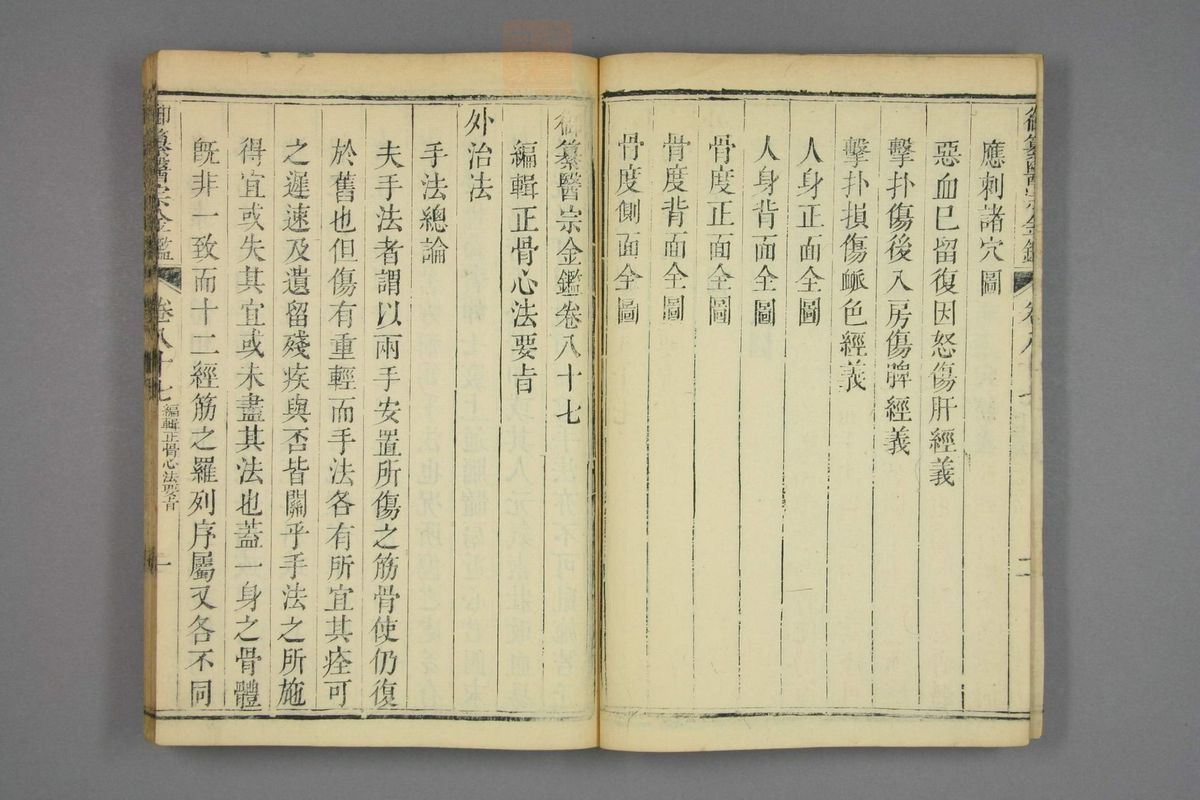 御纂醫宗金鑑
卷八十七
二
應刺諸穴圖
惡血已留復因怒傷肝經義
擊扑傷後入房傷脾經義
擊扑損傷䘑色經義
人身正面全圖
人身背面全圖
骨度正面全圖
骨度背面全圖
骨度側面全圖
御纂醫宗金鑑卷八十七
編輯正骨心法要㫖
外治法
手法總論
夫手法者謂以兩手安置所傷之筋骨使仍復
於舊也但傷有重輕而手法各有所宜其痊可
之遲速及遺留殘疾與否皆關乎手法之所施
得宜或失其宜或未盡其法也蓋一身之骨體
旣非一致而十二經筋之羅列序屬又各不同
御纂醫宗金鑑
卷八十七
編輯正骨心法要㫖
一